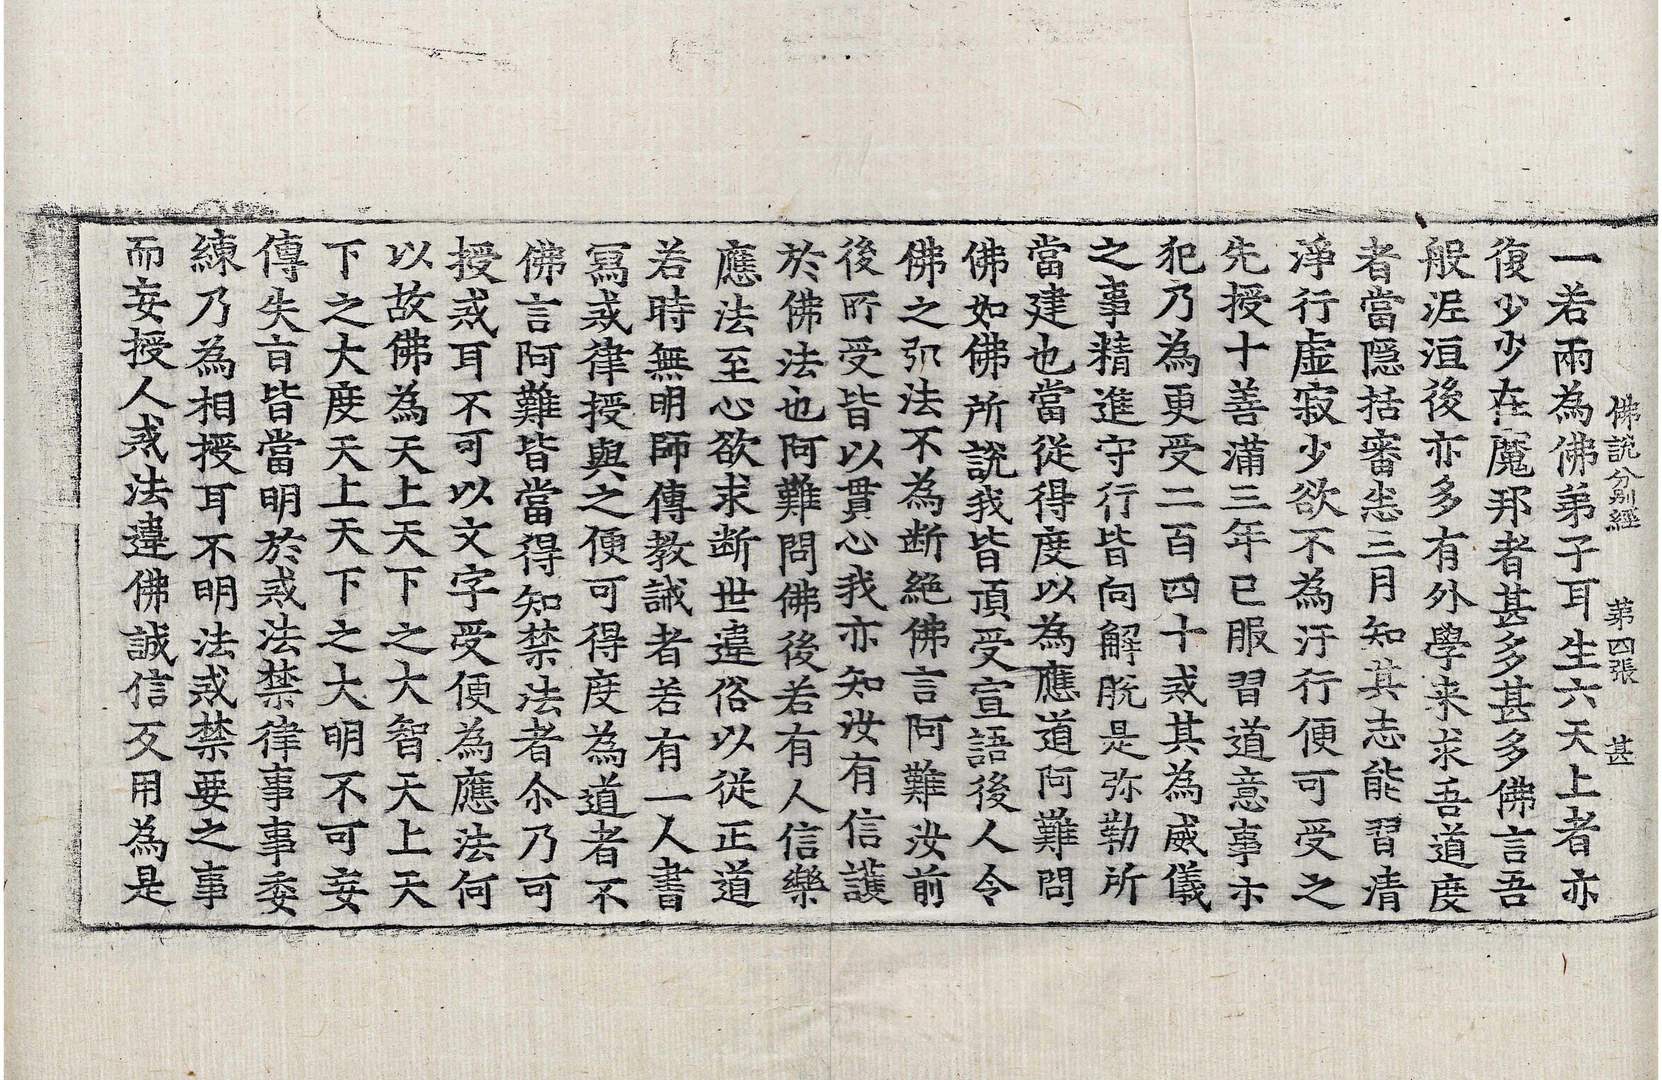 佛說分別經　第四張　甚
一若兩為佛弟子耳生六天上者亦
復少少在魔邦者甚多甚多佛言吾
般泥洹後亦多有外學来求吾道度
者當隱括審悉三月知其志能習清
淨行虛寂少欲不為汙行便可受之
先授十善滿三年已服習道意事亦
犯乃為更受二百四十戒其為威儀
之事精進守行皆向解脫是弥勒所
當建也當從得度以為應道阿難問
佛如佛所說我皆頂受宣語後人令
佛之弘法不為断絕佛言阿難汝前
後所受皆以貫心我亦知汝有信護
於佛法也阿難問佛後若有人信樂
應法至心欲求断世違俗以從正道
若時無明師傳教誡者若有一人書
寫戒律授與之便可得度為道者不
佛言阿難皆當得知禁法者尒乃可
授戒耳不可以文字受便為應法何
以故佛為天上天下之大智天上天
下之大度天上天下之大明不可妄
傳失盲皆當明於戒法禁律事事委
練乃為相授耳不明法戒禁要之事
而妄授人戒法違佛誡信叐用為是